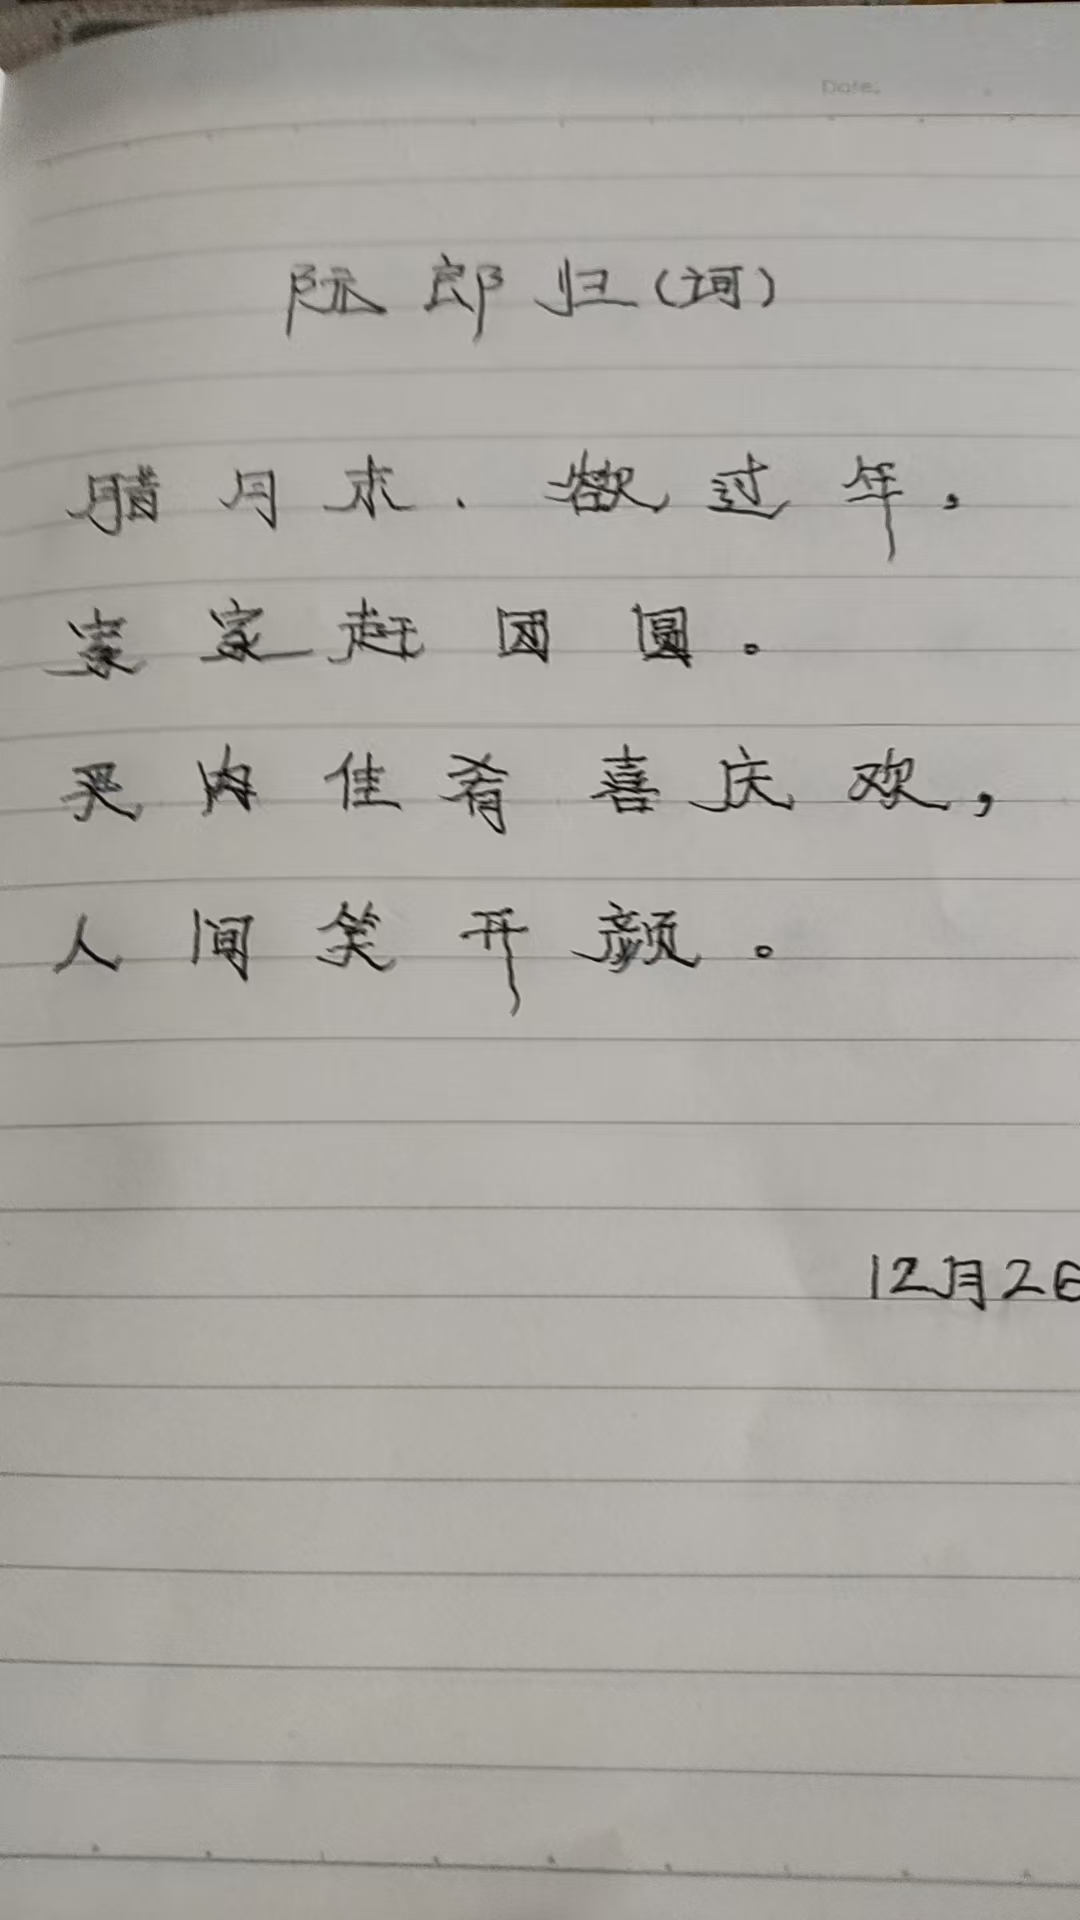 Date.
阮郎归(词)
腊月末.欲过年,
家家赶团圆。
肉佳肴喜庆欢,
人间笑开颜。
12月2